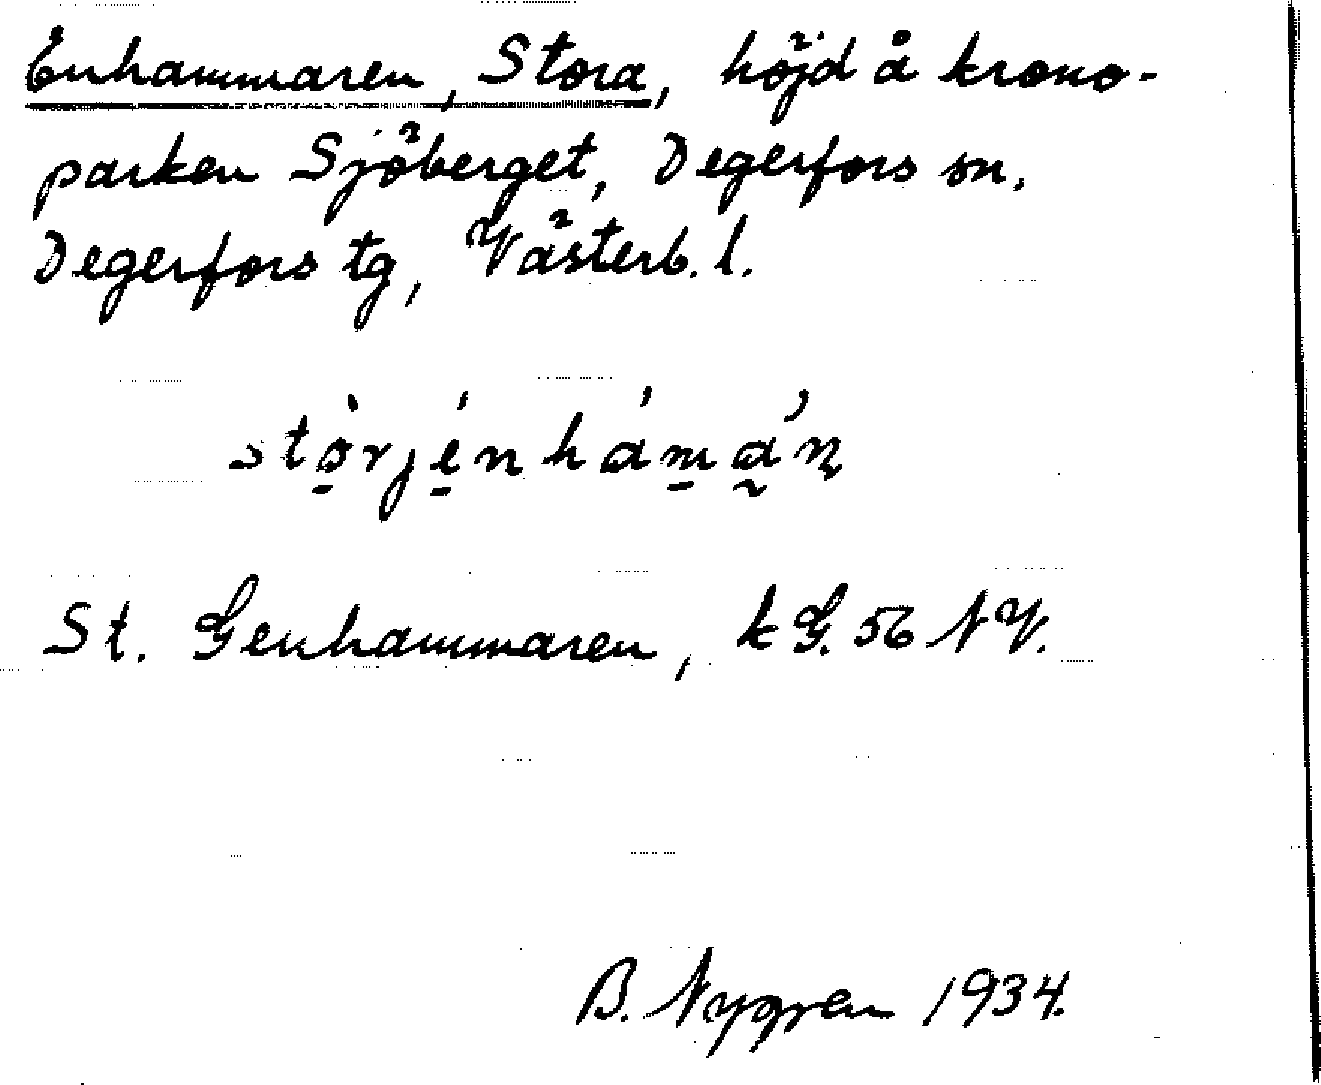 Enhammaren, Stora, höjd å krono-
parken Sjöberget, Degerfors sn,
Degerfors tg, Västerb. l.
stòrjénhámán
St. Genhammaren, k G. 56 NV.
B. Nygren 1934.